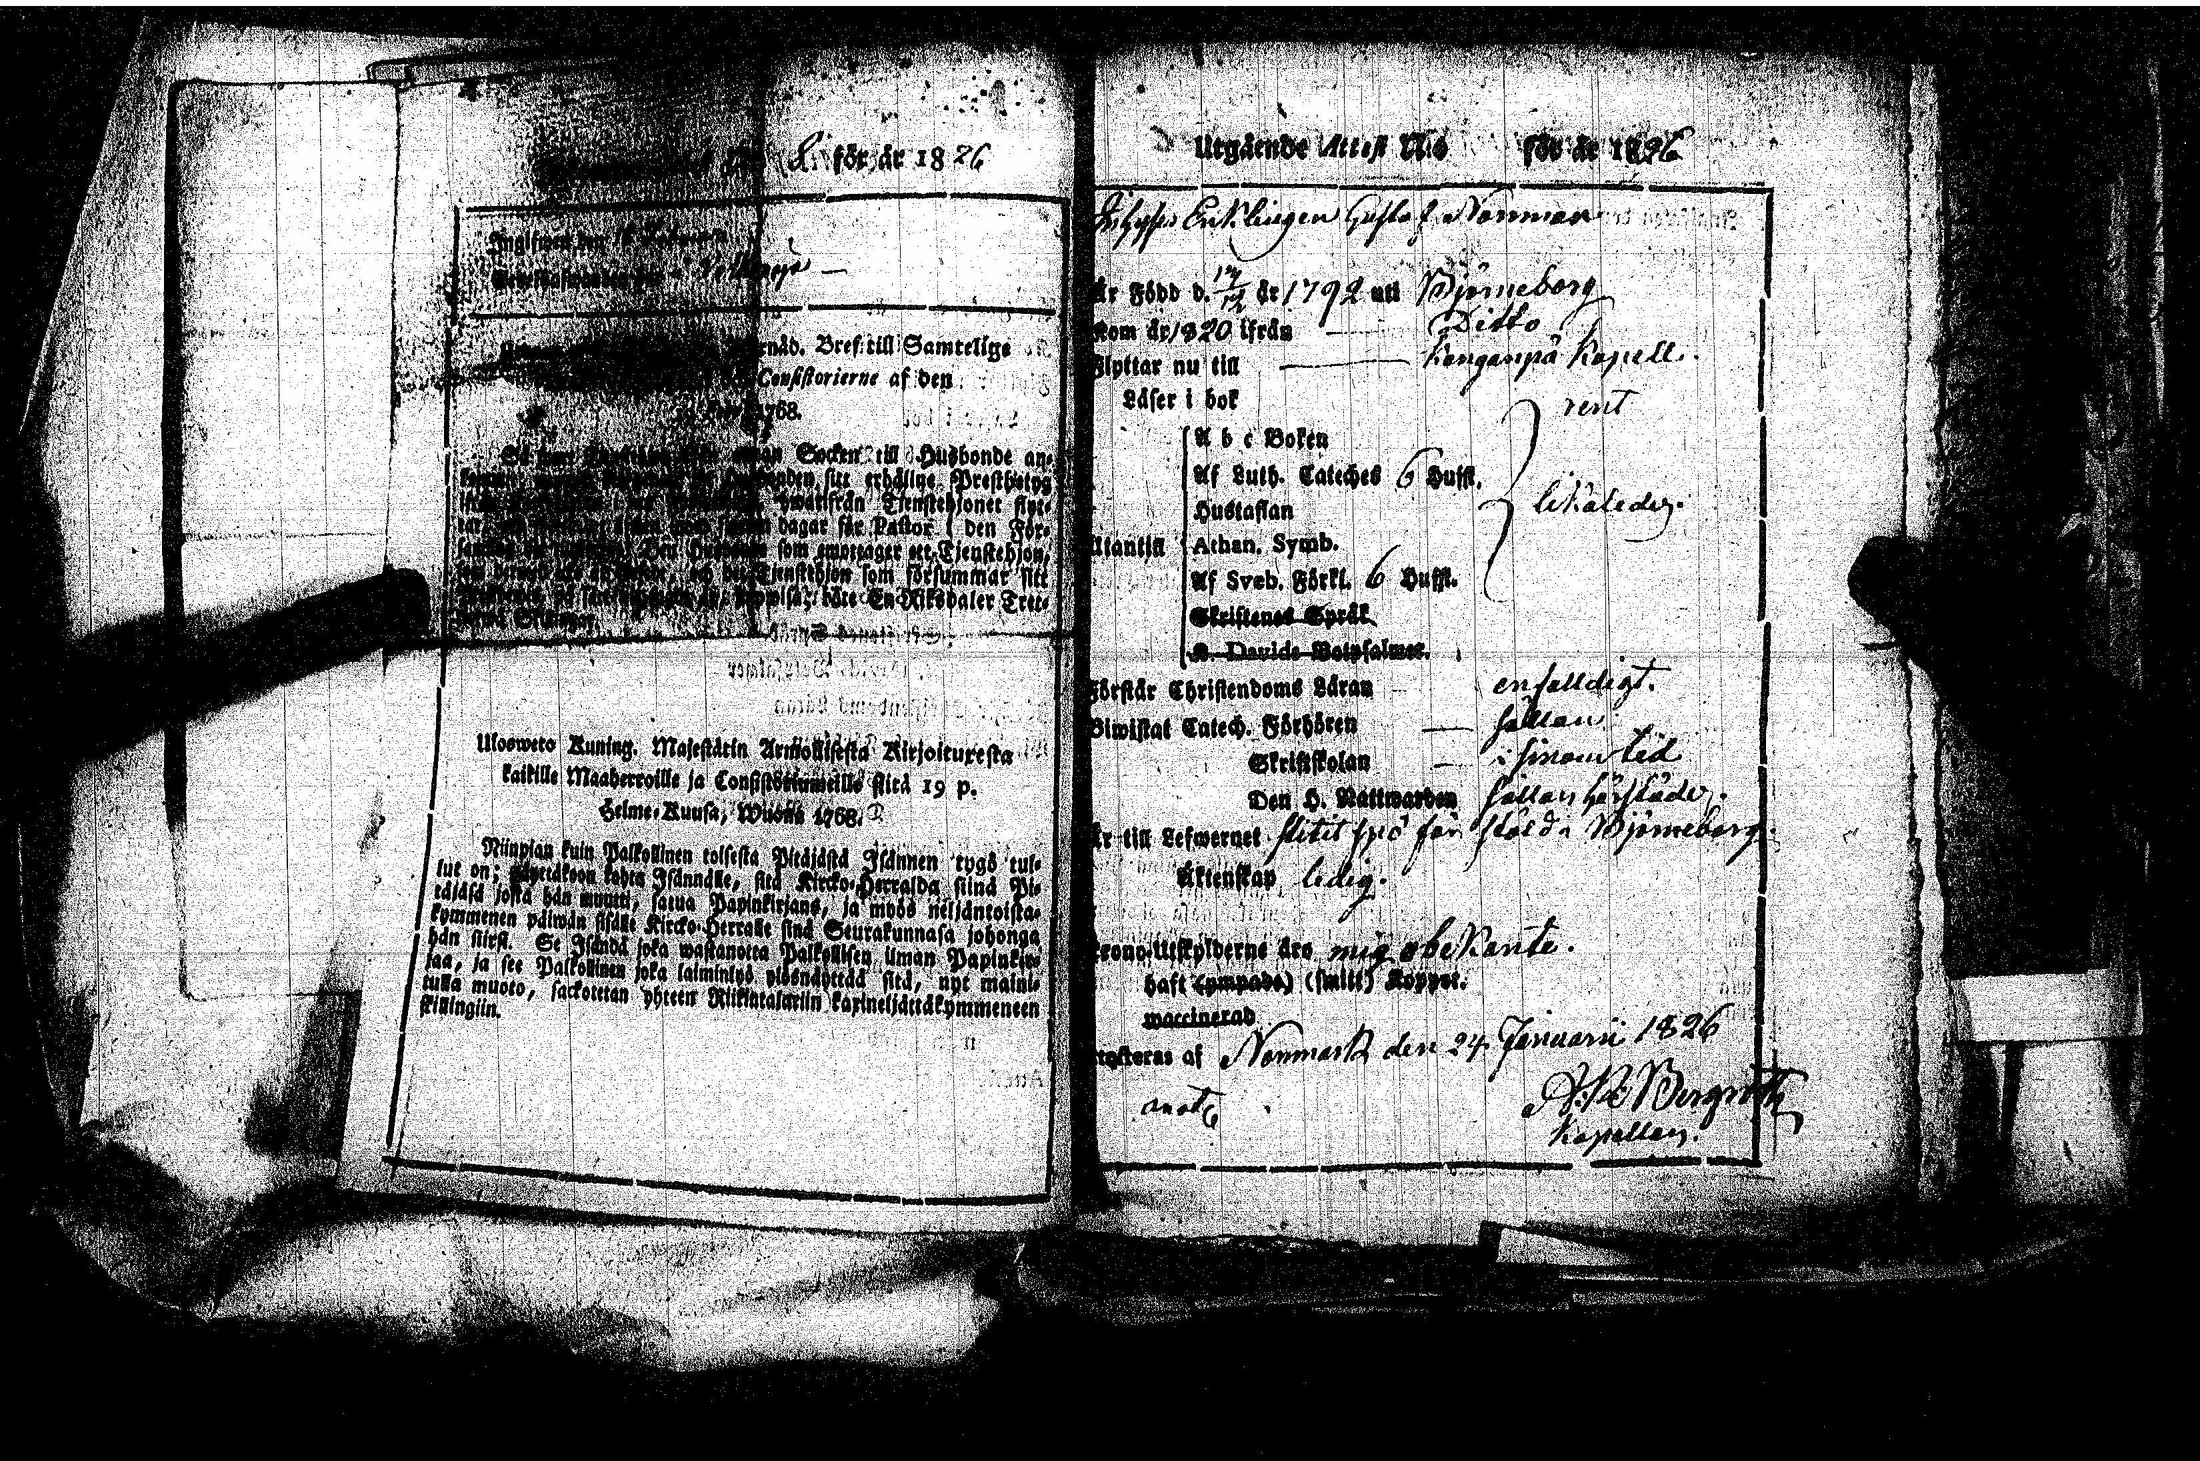 för år 1826
Ingifwen den
Bref till Samtelige
Consistorierne af den
1768.
Socken till Husbonde an-
sitt erhållne Prestbetyg
hwarifrån Tjenstehjonet flyt-
dagar för Pastor i den För-
som emottager ett Tjenstehjon,
Tjenstehjon som försummar sitt
böte En Riksdaler Tret-
Ulosweto Kuning. Majestätin Armollisesta Kirjoituxesta
kaikille Maaherroille ja Consistoriumeille siitä 19 p.
Helme-Kuusa, Wuonna 1768.
Niinpian kuin Palkollinen toisesta Pitäjästä Isännen tygö tul-
lut on; näyttäköön kohta Isännälle, sitä Kircko-Herralda siinä Pi-
täjäsä josta hän muutti, saatua Papinkirjans, ja myös neljäntoista-
kymmenen päiwän sisälle Kircko-Herralle siinä Seurakunnasa johonga
hän siirsi. Se Isändä joka wastanotta Palkollisen ilman Papinkir-
jaa, ja see Palkollinen joka laiminlyö ylösnäyttää sitä, nyt maini-
tulla muoto, sackotetan yhteen Riikintalariin kaxineljättäkymmeneen
skillingiin.
Utgående Attest No för år 1826
Enklingen Gustaf Nonman
Är Född d. 17/12 år 1792 uti Björneborg
Kom år 1820 ifrån Ditto
Flyttar nu till Kanganpä Kapell.
Läser i bok rent
Utantill
A b c Boken
Af Luth. Cateches 6 Hufst.
Hustaflan
Athan. Symb.
Af Sveb. Förkl. 6 Hufst.
likaledes.
Skriftenes Språk
D. Davids Botpsalmer.
Förstår Christendoms Läran enfalldigt.
Biwistat Catech. Förhören sällan
Skriftskolan i sinom tid
Den H. Nattwarden sällan härstädes.
Är till Lefwernet slitit spö för stöld i Björneborg.
Äktenskap ledig.
Krono-Utskylderne äro mig obekante.
haft (ympade) (smitt) Koppor.
waccinerad
Attesteras af Nonmark den 24 Januarii 1826
Bergroth
Kapellan.